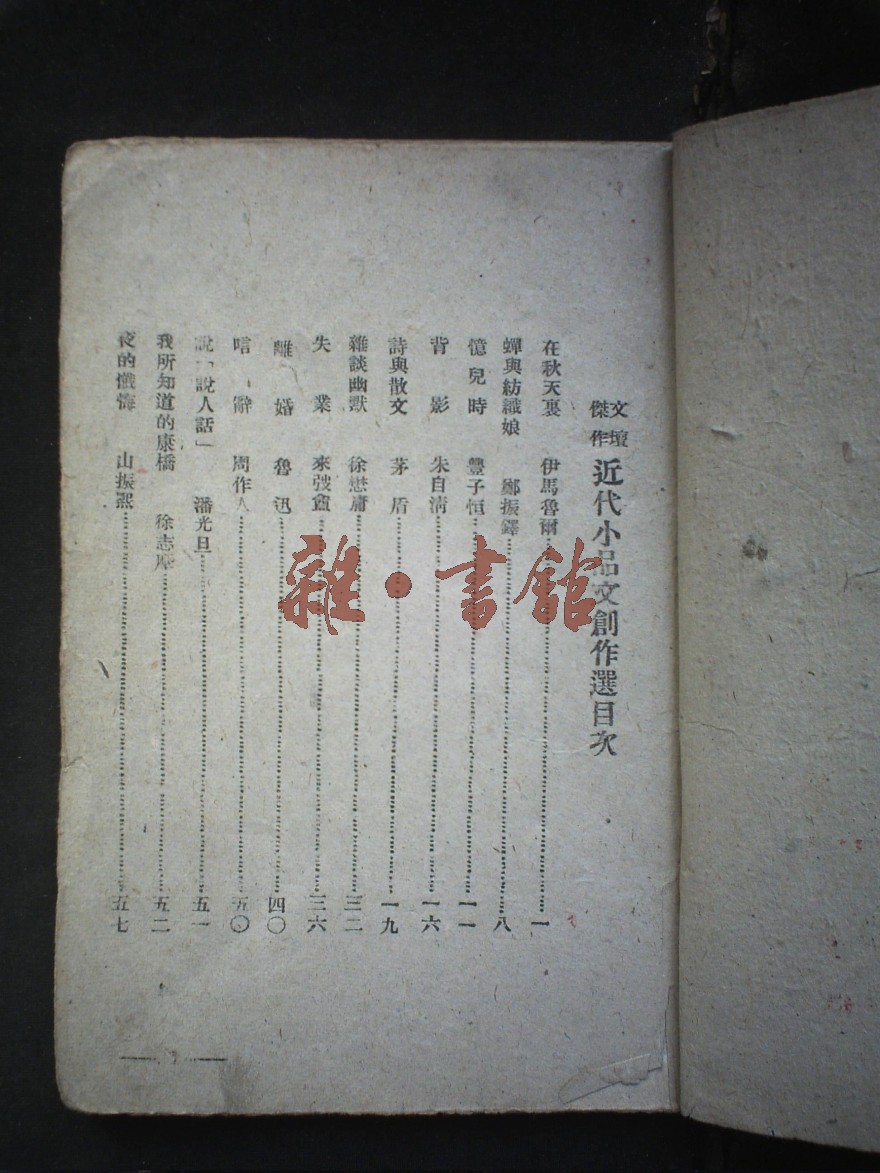 文壇
傑作
近代小品文創作選目次
在秋天裏 伊馬魯爾 一
蟬與紡織娘 鄭振鐸 八
憶兒時 豐子恒 一一
背影 朱自清 一六
詩與散文 茅盾 一九
雜談幽默 徐懋庸 三二
失業 來弢盦 三六
離婚 魯迅 四〇
唁辭 周作人 五〇
說「說人話」 潘光旦 五一
我所知道的康橋 徐志摩 五二
夜的懺悔 山振羆 五七
雜·書館